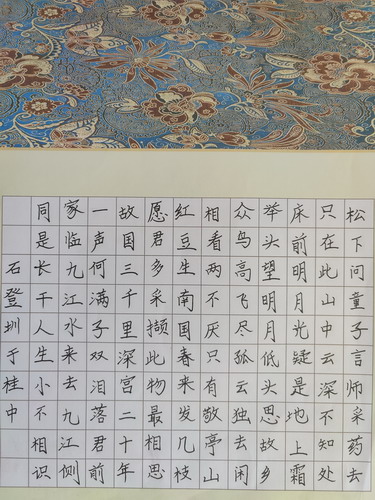 松下问童子言师采药去
只在此山中云深不知处
床前明月光疑是地上霜
举头望明月低头思故乡
众鸟高飞尽孤云独去闲
相看两不厌只有敬亭山
红豆生南国春来发几枝
愿君多采撷此物最相思
故国三千里深宫二十年
一声何满子双泪落君前
家临九江水来去九江侧
同是长干人生小不相识
石登圳于桂中